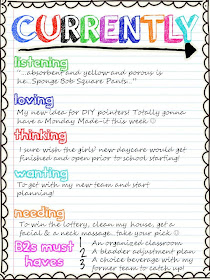 CURRENTLY
listening
"...absorbent and yellow and porous is
he. Sponge Bob Square Pants..."
loving
My new idea for DIY pointers! Totally gonna
have a Monday Made-it this week ☺
thinking
I sure wish the girls' new daycare would get
finished and open prior to school starting!
wanting
To get with my new team and start
planning!
needing
To win the lottery, clean my house, get a
facial & a neck massage... take your pick ☺
B2S must
haves
1 An organized classroom
2 A bladder adjustment plan
3 A choice beverage with my
former team to catch up!